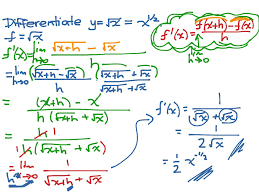 Differentiate y = √x = x^1/2
f = √x
f'(x) = lim h→0 (f(x+h) - f(x))/h
f'(x) = lim h→0 (√x+h - √x)/h
= lim h→0 (√x+h - √x)/h (√x+h + √x)/(√x+h + √x)
= ((x+h) - x)/(h(√x+h + √x))
= h 1/(1 h(√x+h + √x))
= lim h→0 1/(√x+h + √x)
f'(x) = 1/(√x + √x)
= 1/(2√x)
= 1/2 x^-1/2